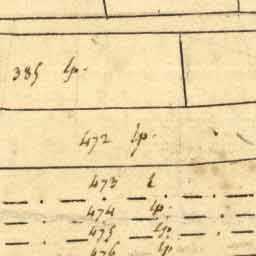 385 lp.
472 lp.
473 l
474 lp.
475 lp.
476 lp